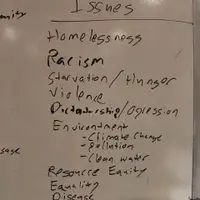 Issues
Homelessness
Racism
Starvation / Hunger
Violence
Dictatorship / Opression
Environment
- Climate Change
- Pollution
- Clean water
Resource Equity
Equality
Disease